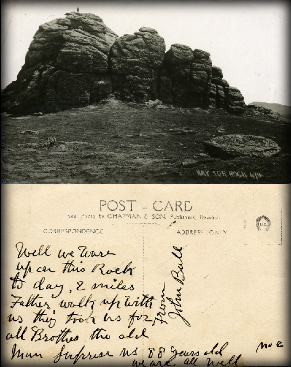 HAY TOR ROCK
POST - CARD
Real Photo by CHAPMAN & SON, Publishers, Dawlish.
CORRESPONDENCE
ADDRESS ONLY
Well we ware
up on this Rock
to day, 2 miles
Father walk up with
us they took us for
all Brothes the old
Man Surprise us 88 years old
we are all well
From
John Bull